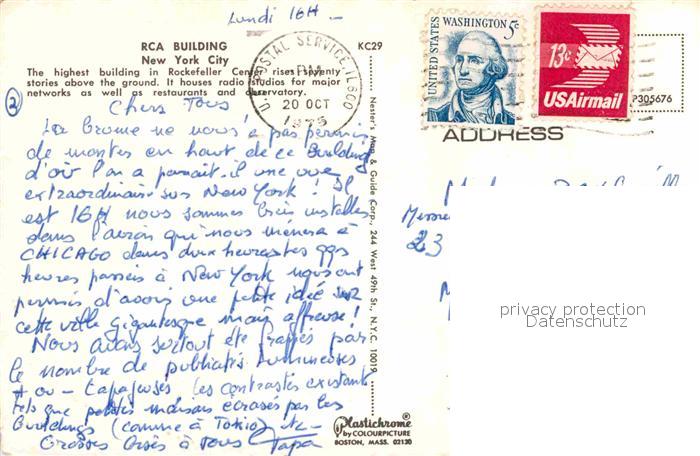 Lundi 16H -
RCA BUILDING
New York City
KC29
The highest building in Rockefeller Center rises seventy
stories above the ground. It houses radio studios for major
networks as well as restaurants and observatory.
2
Chers Tous
La brume ne nous a pas permis
de monter en haut de ce Building
d'où l'on a parait-il une vue
extraordinaire sur New York! Il
est 16H nous sommes bien installés
dans l'avion qui nous mènera à
CHICAGO dans deux heures
heures passées à New York nous ont
permis d'avoir une petite idée sur
cette ville gigantesque mais affreuse!
Nous avons surtout été frappés par
le nombre de publicités lumineuses
+ ou - tapageuses les contrastes existant
tels que petites maisons écrasées par les
Buildings (comme à Tokio)
Grosses bises à tous
Papa
U.S. POSTAL SERVICE, IL 600
PM
20 OCT
1975
Nester's Map & Guide Corp., 244 West 49th St., N.Y.C. 10019
Plastichrome®
by COLOURPICTURE
BOSTON, MASS. 02130
UNITED STATES
WASHINGTON 5c
13c
USAirmail
P305676
ADDRESS
23
privacy protection
Datenschutz